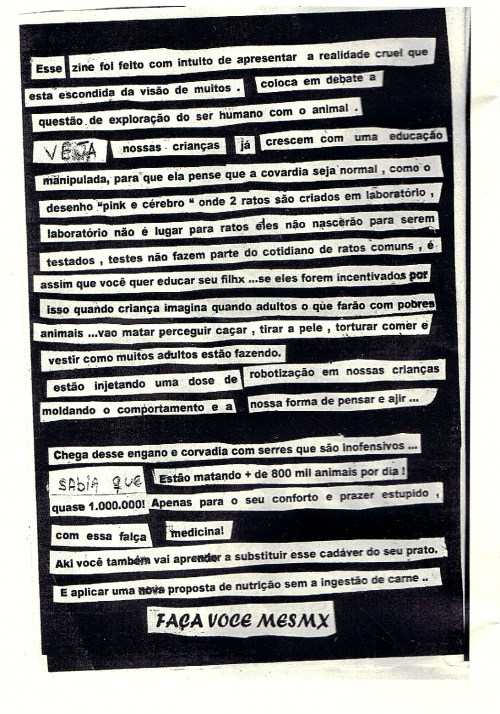 Esse zine foi feito com intuito de apresentar a realidade cruel que
esta escondida da visão de muitos . coloca em debate a
questão de exploração do ser humano com o animal .
VEJA nossas crianças já crescem com uma educação
manipulada, para que ela pense que a covardia seja normal , como o
desenho “pink e cérebro “ onde 2 ratos são criados em laboratório ,
laboratório não é lugar para ratos eles não nascerão para serem
testados , testes não fazem parte do cotidiano de ratos comuns , é
assim que você quer educar seu filhx ...se eles forem incentivados por
isso quando criança imagina quando adultos o que farão com pobres
animais ...vao matar perceguir caçar , tirar a pele , torturar comer e
vestir como muitos adultos estão fazendo.
estão injetando uma dose de robotização em nossas crianças
moldando o comportamento e a nossa forma de pensar e ajir ...
Chega desse engano e corvadia com serres que são inofensivos ...
SAbiA QUE Estão matando + de 800 mil animais por dia !
quase 1.000.000! Apenas para o seu conforto e prazer estupido ,
com essa falça medicina!
Aki você também vai aprender a substituir esse cadáver do seu prato.
E aplicar uma nova proposta de nutrição sem a ingestão de carne ..
FAÇA VOCE MESMX